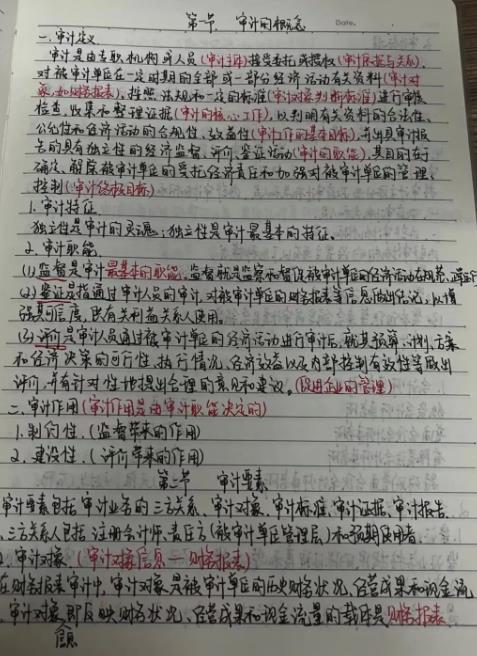 第一节 审计的概念
Date.
一.审计定义
审计是由专职机构或人员(审计主体)接受委托或授权(审计依据与关系),
对被审计单位在一定时期的全部或一部分经济活动有关资料(审计对
象,如财务报表),按照法规和一定的标准(审计对象判断标准)进行审核
检查,收集和整理证据(审计的核心工作),以判明有关资料的合法性、
公允性和经济活动的合规性、效益性(审计工作的基本目标),并出具审计报
告的具有独立性的经济监督、评价、鉴证活动(审计的职能),其目的在于
确定、解除被审计单位的受托经济责任和加强对被审计单位的管理
控制(审计终极目标)
1.审计特征
独立性是审计的灵魂;独立性是审计最基本的特征。
2.审计职能
(1)监督是审计最基本的职能。监督就是监察和督促被审计单位的经济活动在规范、
(2)鉴证是指通过审计人员的审计,对被审计单位的财务报表等信息做出结论,以增
强其可信度,供有关利益关系人使用。
(3)评价是审计人员通过被审计单位的经济活动进行审计后,就其预算、计划、方案
和经济决策的可行性、执行情况、经济效益以及内部控制有效性等做出
评价,并有针对性地提出合理的意见和建议。(促进企业的管理)
二.审计作用(审计作用是由审计职能决定的)
1.制约性.(监督带来的作用)
2.建设性.(评价带来的作用)
第二节 审计要素
审计要素包括审计业务的三方关系、审计对象、审计标准、审计证据、审计报告.
三方关系人包括注册会计师、责任方(被审计单位管理层)和预期使用者.
审计对象.(审计对象信息—财务报表)
在财务报表审计中,审计对象是被审计单位的历史财务状况、经营成果和现金流
审计对象,即反映财务状况、经营成果和现金流量的载体是财务报表.